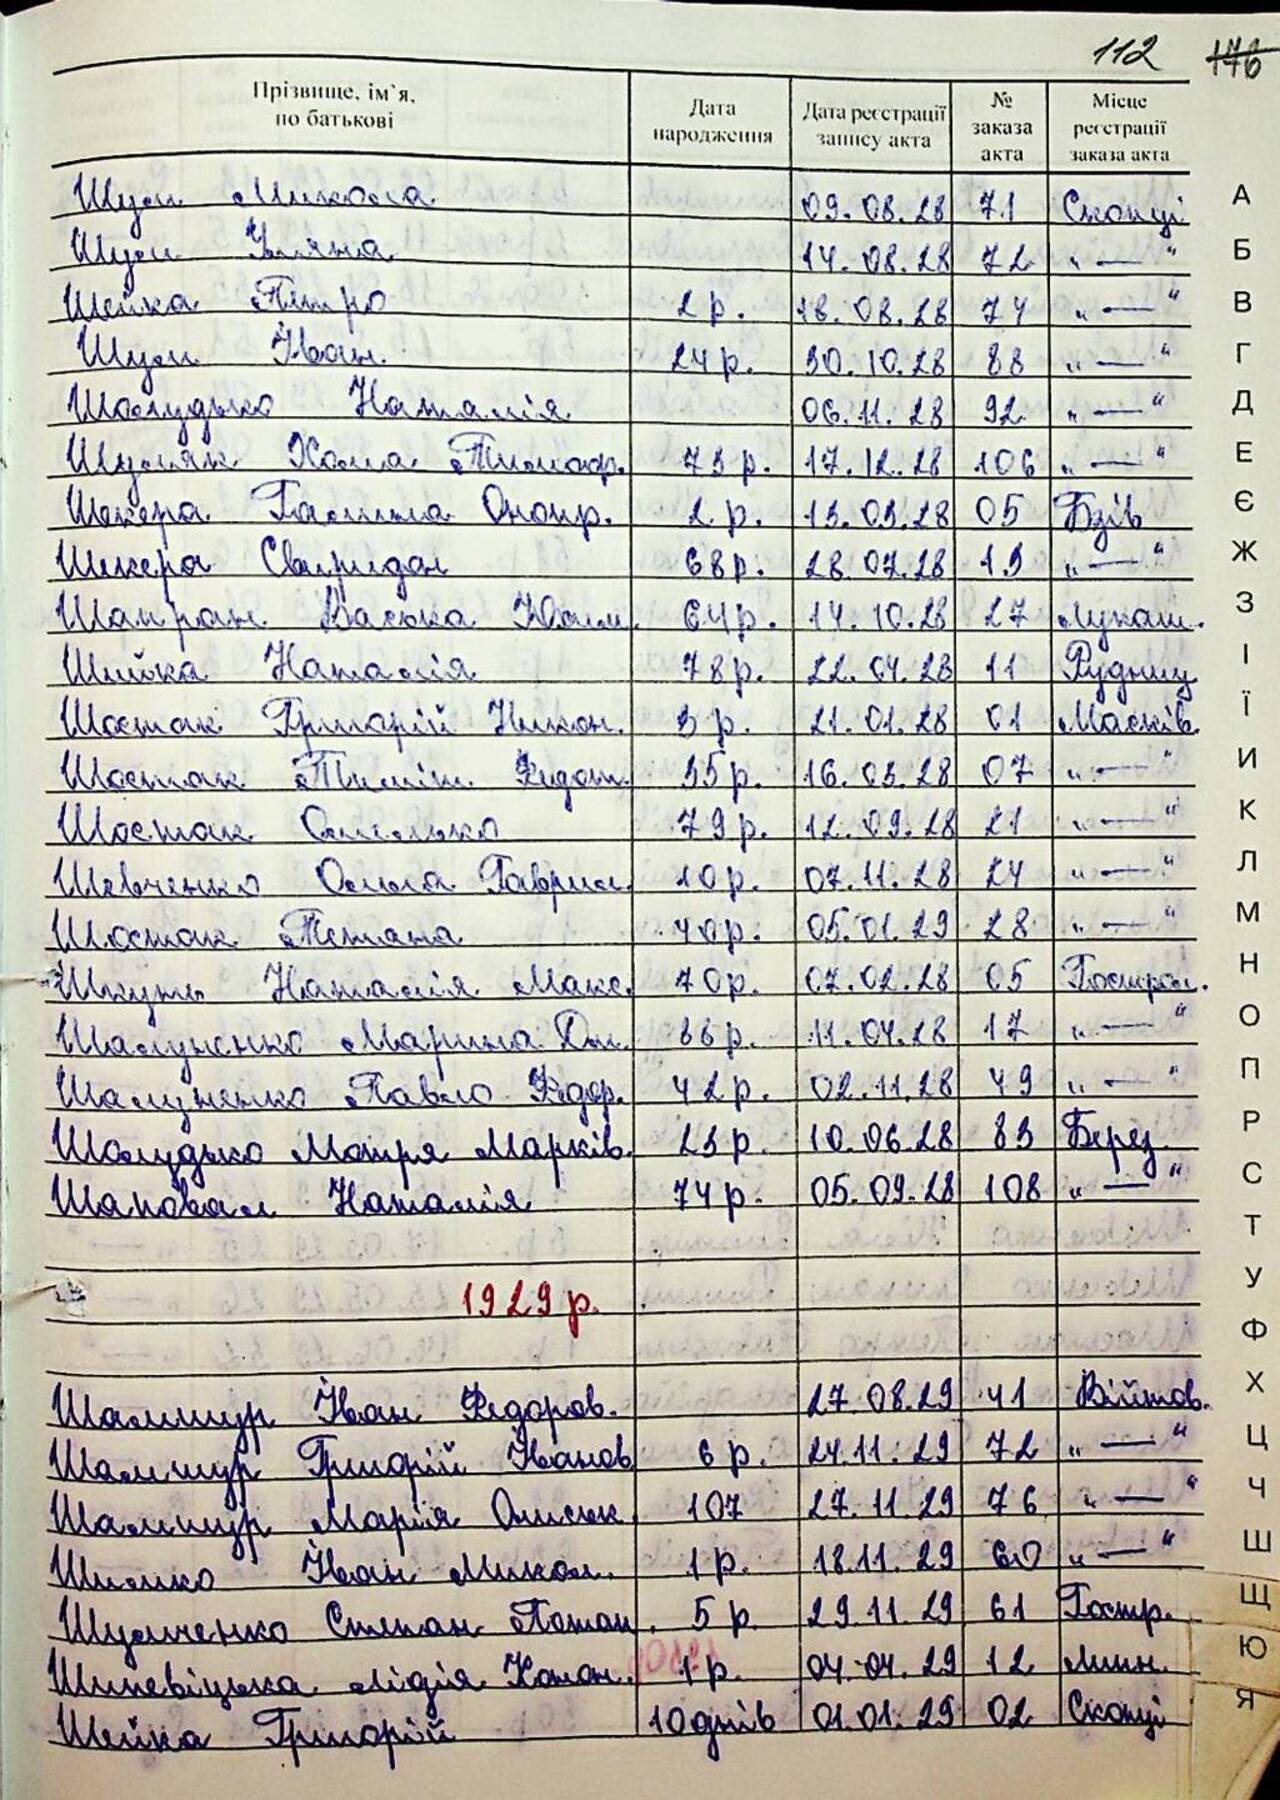 112 176
Прізвище, ім`я, по батькові Дата народження Дата реєстрації запису акта № заказа акта Місце реєстрації заказа акта
Шум Микола 09.08.28 71 Скопці
Шум Уляна 14.08.28 72 „—“
Шейка Петро 2 р. 18.08.28 74 „—“
Шум Іван 24 р. 30.10.28 88 „—“
Шолудько Наталія 06.11.28 92 „—“
Шуляк Хома Тимоф. 73 р. 17.12.28 106 „—“
Шекера Онопр. 2 р. 13.03.28 05 Бзів
Шекера Свиридон 68 р. 28.07.28 19 „—“
Шапран Васька Юхим. 64 р. 14.10.28 27 Лукаш.
Шийка Наталія 78 р. 22.04.28 11 Рудниц
Шостак Григорій Никон. 3 р. 21.01.28 01 Масків.
Шостак Федот. 35 р. 16.03.28 07 „—“
Шостак Омелько 79 р. 12.09.28 21 „—“
Шевченко Ольга Гаврил. 10 р. 07.11.28 24 „—“
Шостак Тетяна 40 р. 05.01.29 28 „—“
Шкунь Наталія Макс. 70 р. 07.02.28 05 Гострол.
Шалуненко Марина Дм. 11.04.28 17 „—“
Шалуненко Павло Федор. 42 р. 02.11.28 49 „—“
Шолудько Мотря Марків. 23 р. 10.06.28 83 Берез.
Шаповал Наталія 74 р. 05.09.28 108 „—“
1929 р.
Шамшур Іван Федоров. 27.08.29 41 Війтов.
Шамшур Григорій Іванов 6 р. 24.11.29 72 „—“
Шамшур Марія Олисик 107 27.11.29 76 „—“
Шилко Іван Микол. 1 р. 18.11.29 60 „—“
Шульченко Степан Потап. 5 р. 29.11.29 61 Гостр.
Шипевіцька Лідія Конон. 1 р. 04.04.29 12 Лин.
Шейка Григорій 10 днів 01.01.29 02 Скопці
А
Б
В
Г
Д
Е
Є
Ж
З
І
Ї
И
К
Л
М
Н
О
П
Р
С
Т
У
Ф
Х
Ц
Ч
Ш
Щ
Ю
Я